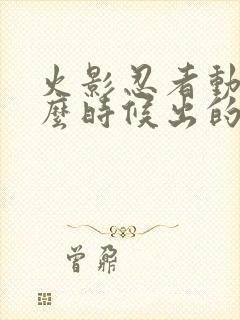 火影忍者動
麼時候出的
曾鼐